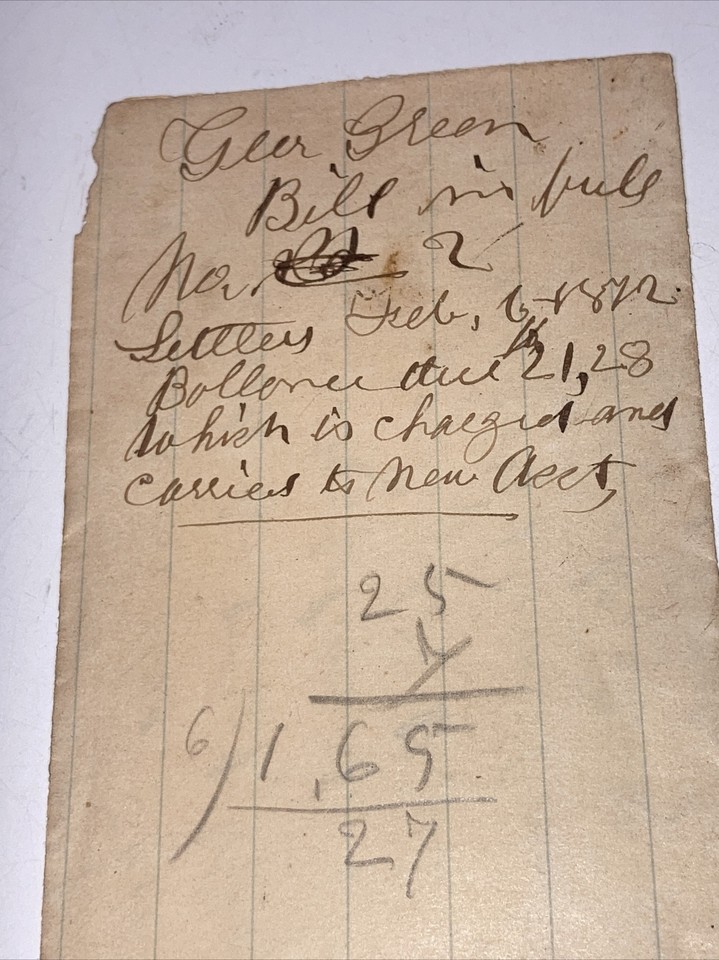 Geor Green
Bill in full
No. 2
Settled Feb, 6-1872
Ballance due $21,28
Which is charged and
carried to New Acct,
25
6)1,65
27